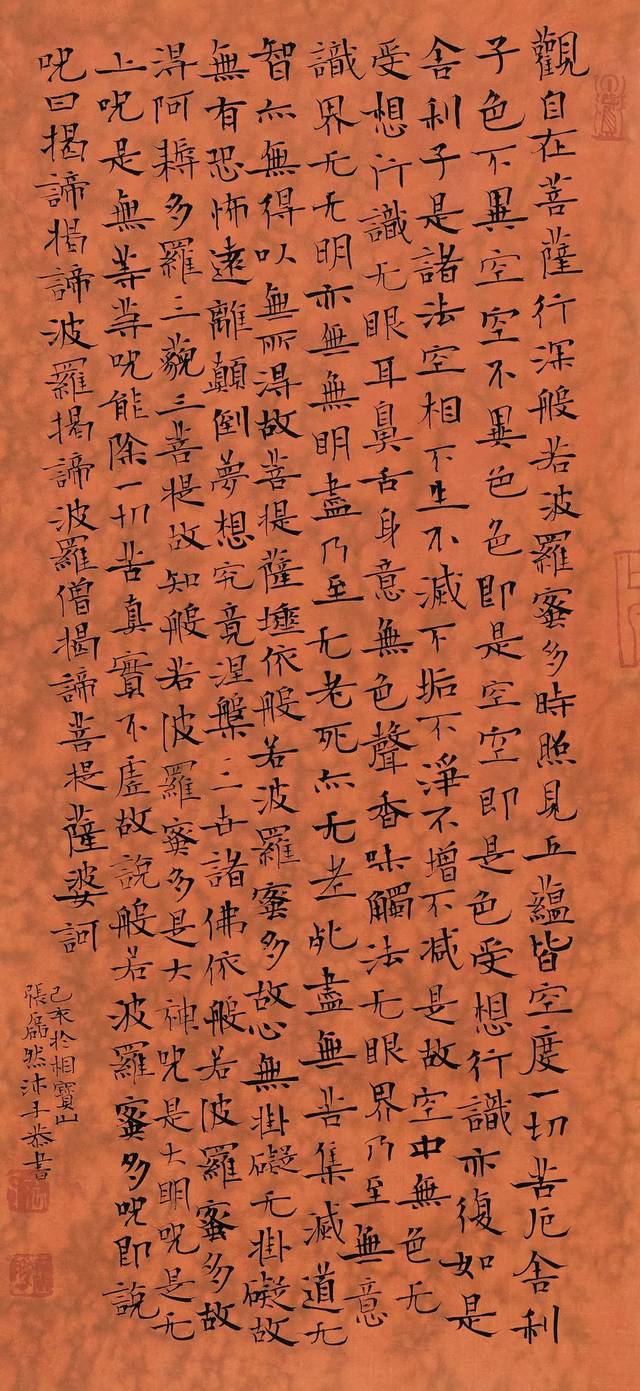 觀自在菩薩行深般若波羅蜜多時照見五蘊皆空度一切苦厄舍利
子色不異空空不異色色即是空空即是色受想行識亦復如是
舍利子是諸法空相不生不滅不垢不淨不增不减是故空中無色无
受想行識无眼耳鼻舌身意無色聲香味觸法无眼界乃至無意
識界无无明亦無無明盡乃至无老死亦无老死盡無苦集滅道无
智亦無得以無所淂故菩提薩埵依般若波羅蜜多故心無掛礙无掛礙故
無有恐怖遠離顛倒夢想究竟涅槃三世諸佛依般若波羅蜜多故
淂阿耨多羅三藐三菩提故知般若波羅蜜多是大神呪是大明呪是无
上呪是無等等呪能除一切苦真實不虛故說般若波羅蜜多呪即說
呪曰揭諦揭諦波羅揭諦波羅僧揭諦菩提薩婆訶
己於相寶山
張磊然沐手恭書